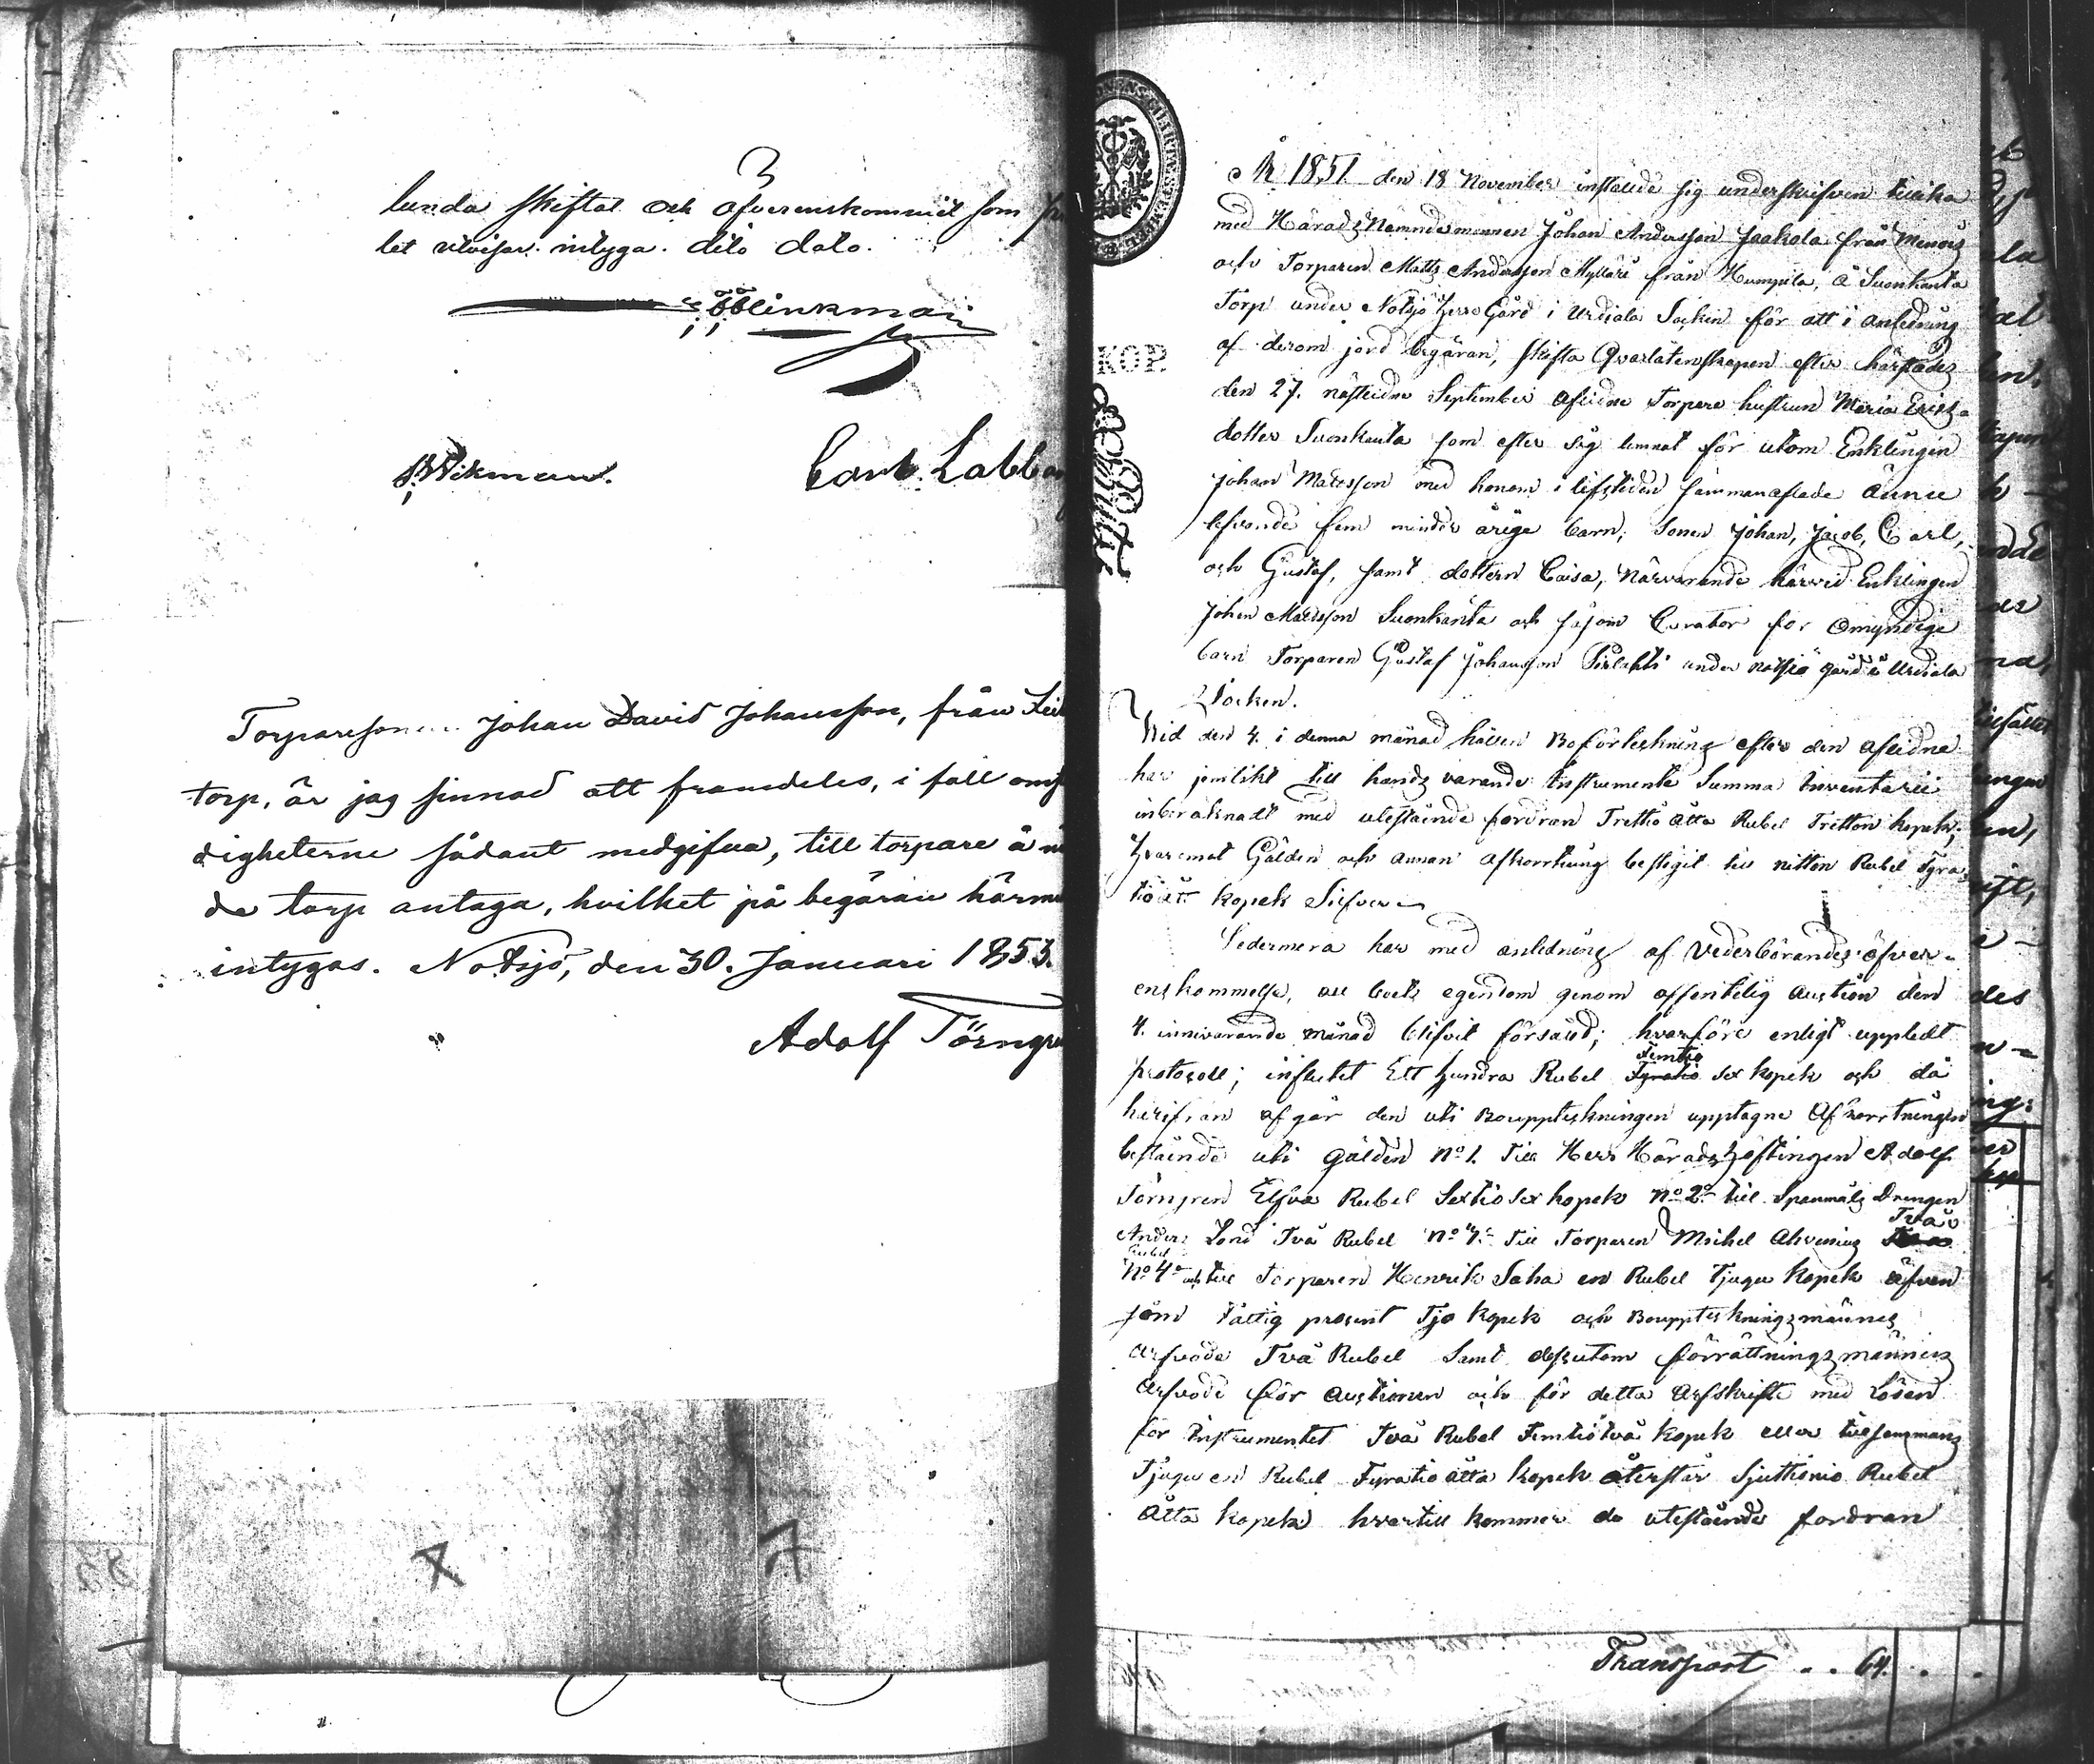 lunda skiftat och öfverenskommit som
let utvisar. intyga. dito dato.
Wikman.
Carl Labb
Torparesonen Johan David Johansson, från
torp, är jag sinnad att framdeles, i fall
digheterne sådant medgifva, till torpare å
de torp antaga, hvilket på begäran
intygas. Notsjö, den 30. Januari 1853.
Adolf Törngre
KOP.
År 1851. den 18 November instälde sig underskrifven tillika
med Härads Nämndemannen Johan Andersson Jaakola från Menois
och Torparen Matts Andersson Mylläri från Humpila, å Suonkanta
Torp under Notsjö Herre Gård i Urdiala Socken för att i anledning
af derom gjord begäran, skifta Qvarlåtenskapen efter härstädes
den 27. nästledne September Aflidne Torpare hustrun Maria Ericks
dotter Suonkanta som efter sig lemnat för utom Enklingen
Johan Mattsson med honom i lifstiden sammanaflade ännu
lefvande fem minder årige barn; Sonen Johan, Jacob, Carl,
och Gustaf, samt dottern Caisa, Närvarande härvid Enklingen
Johan Mattsson Suonkanta och såsom Curator för Omyndige
barn Torparen Gustaf Johansson Pirlahti under Notsjö gård i Urdiala
Socken.
Wid den 4. i denna månad hållen Boförteckning efter den aflidne
har jemlikt till hands varande Instrumente Summa Inventarii
inberäknadt med utestående fordran Trettio åtta Rubel Tretton kopek;
hvaremot Gälden och annan afkortning bestigit till nitton Rubel Fyra
tio åtta kopek Silfver
Sedermera har med anledning af Vederbörandes öfver-
enskommelse, all boets egendom genom offentelig Auction den
4. innevarande månad blifvit försåld; hvarföre enligt uppledt
Femtio
protocoll; influtit Ett hundra Rubel Fyratio sex kopek och då
härifrån afgår den uti Bouppteckningen upptagne Afkortningen
bestående uti gälden No 1. Till Herr Häradshöfdingen Adolf
Törngren Elfva Rubel Sextiosex kopek No 2o till Spanmåls Drengen
Två
Anders Lond Två Rubel No 3o Till Torparen Michel Ahvenius
Rubel
No 4o och till Torparen Henrik Saha en Rubel Tjugu kopek äfven
som Fattig procent Tjo kopek och Bouppteckningsmännes
arfvode Två Rubel Samt dessutom förrättningsmännens
Arfvode för Auctionen och för detta Arfskifte med Lösen
för Instrumentet Två Rubel Femtiotvå kopek eller tillsammans
Tjugu en Rubel Fyratio åtta kopek återstår Sjuttionio Rubel
Åtta kopek hvartill kommer de utestående fordran
Transport . . 64.